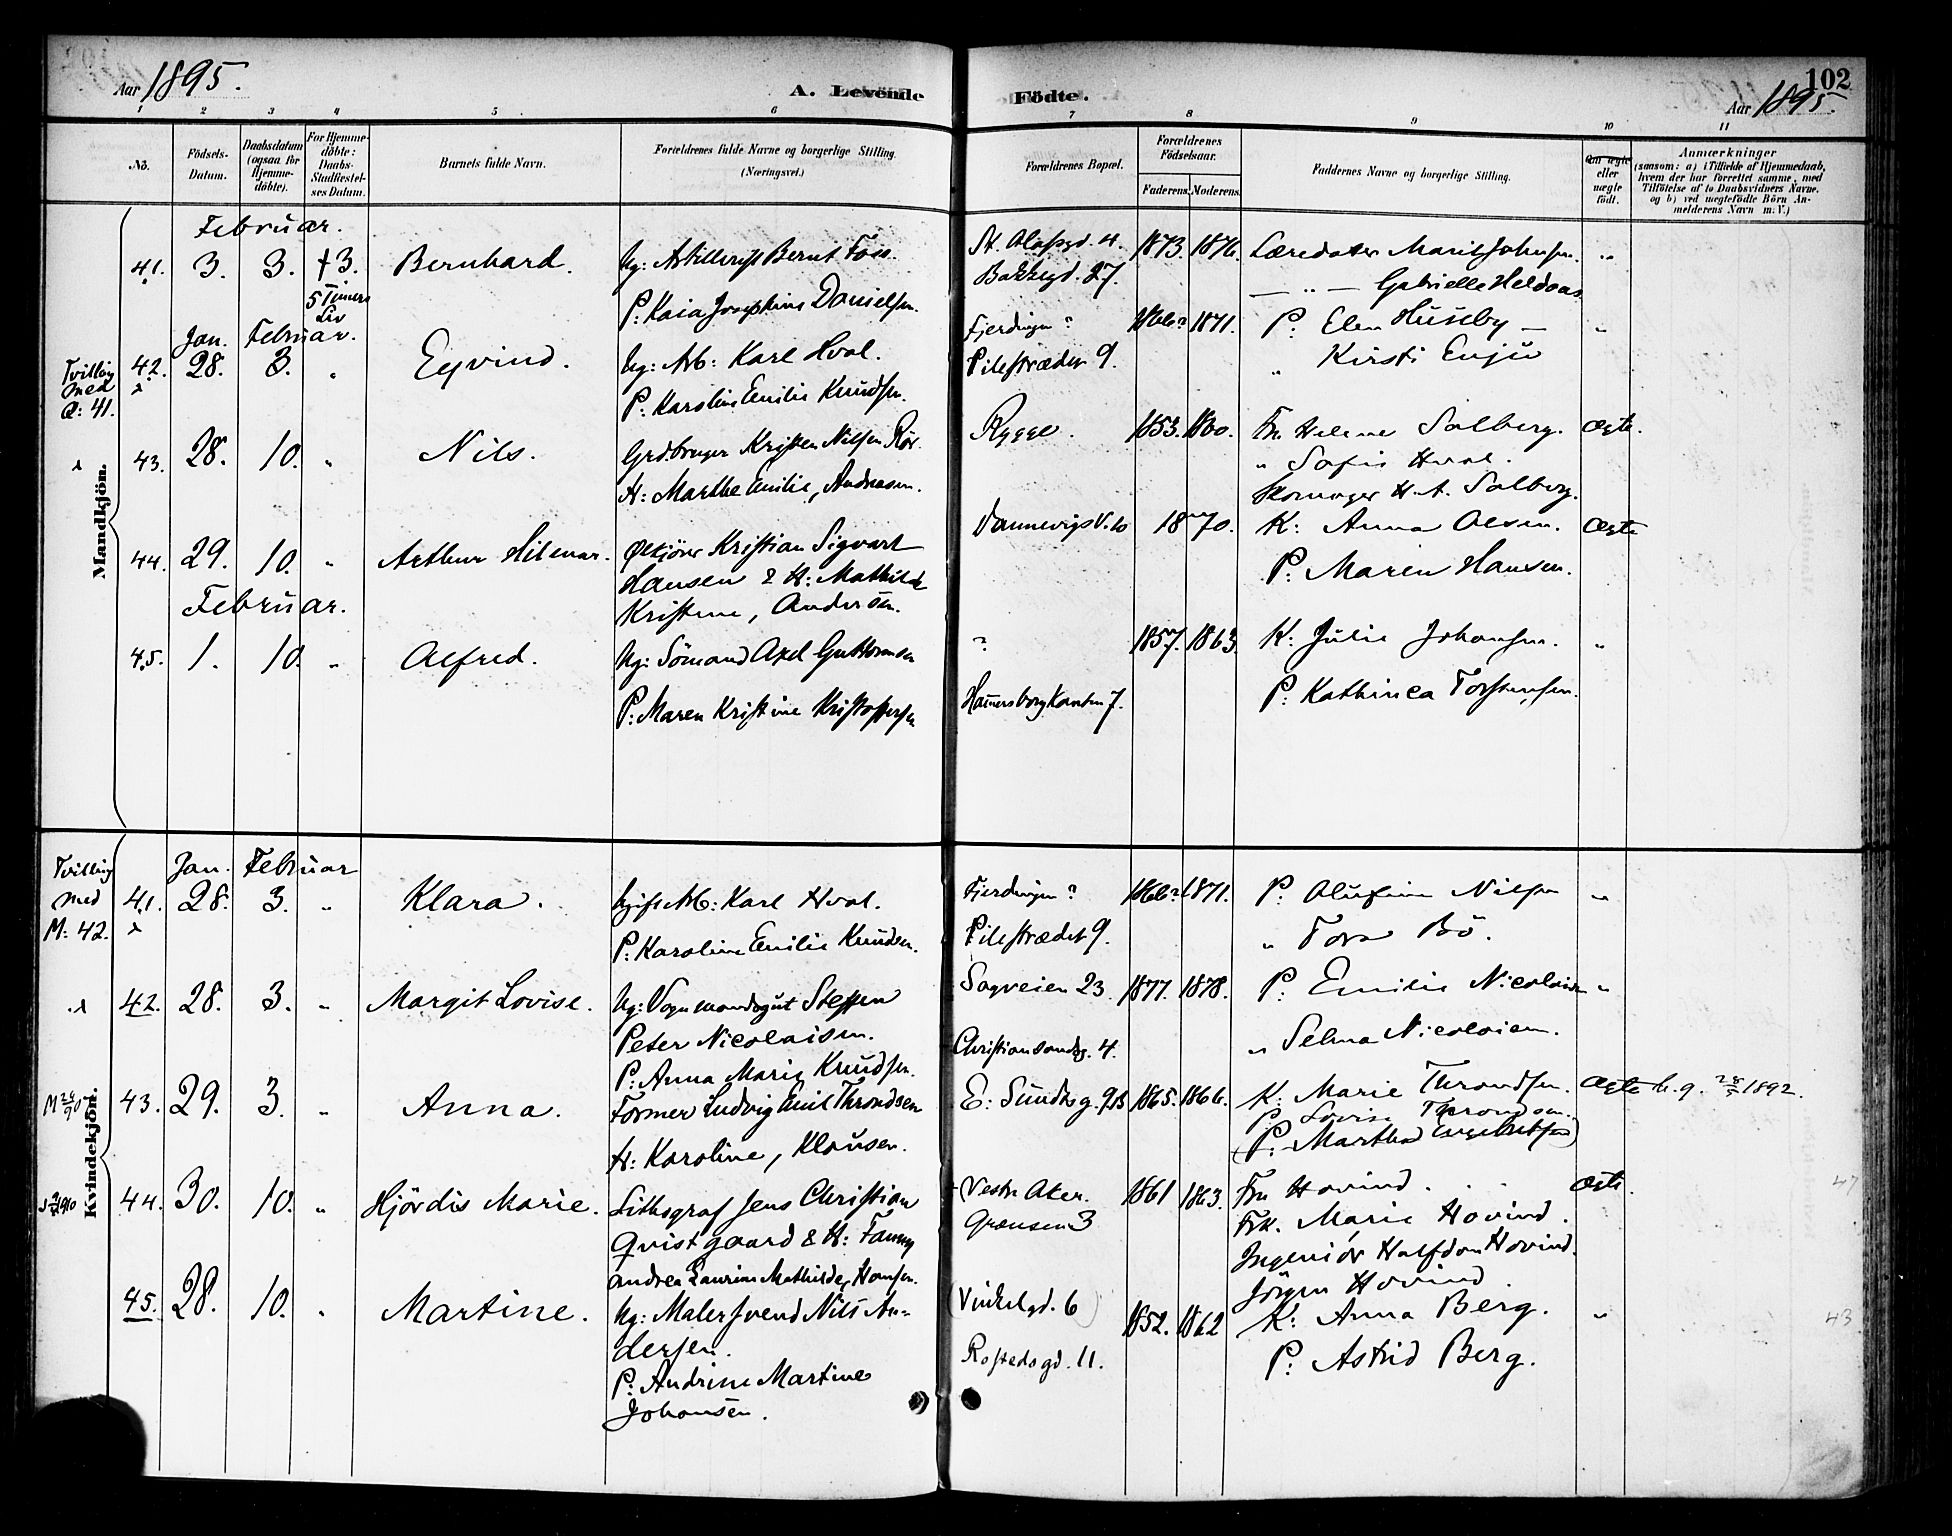 Aar 1895.
A. Levende
Födte.
102
Aar 1895.
1 2 3 4 5 6 7 8 9 10 11
No.
Födsels-Datum.
Daabsdatum (ogsaa for Hjemme-döbte).
For Hjemme-döbte: Daabs-Stadfæstel-ses Datum.
Barnets fulde Navn.
Forældrenes fulde Navne og borgerlige Stilling. (Næringsvei.)
Forældrenes Bopæl.
Forældrenes Födselsaar.
Faderens. Moderens.
Faddernes Navne og borgerlige Stilling.
Om ægte eller uægte födt.
Anmærkninger
(saasom: a) i Tilfælde af Hjemmedaab,
hvem der har forrettet samme, med
Tilföielse af to Daabsvidners Navne.
og b) ved uægtefödte Börn An-
melderens Navn m. V.)
Mandkjön.
Februar.
41. 3. 3. †3. Bernhard. Ug: Artillerist Bernt Foss. St. Olafsgd. 4. 1873. 1876. Læredatter Marit Johnsen. „
5 Timers Liv
P. Kaia Josephine Danielsen. Bakkegd. 27. — „ — Gabrielle Heldaas
Jan. Februar.
Tvilling med Q: 41.
42. 28. 3. „ Eyvind. Ug: Arb: Karl Hval. Fjerdingen? 1866? 1871. P. Elen Huseby — „
P. Karoline Emilie Knudsen. Pilestrædet 9. „ Kirsti Enju
43. 28. 10. „ Nils. Grdbruger Kristen Nilsen Rör Rygge. 1853. 1860. Fru Helene Solberg. Ægte.
H: Marthe Emilie, Andresen. „ Sofie Hval.
Skomager H. A. Solberg.
44. 29. 10. „ Arthur Hilmar. Ølkjörer Kristian Sigvart Dannevigsv. 10 1870. K: Anna Olsen. Ægte
Hansen & H: Mathilde P: Maren Hansen.
Kristine, Andersen.
Februar.
45. 1. 10. „ Alfred. Ug: Sömand Axel Guttormsen ? 1857. 1863. K: Julie Johansen. „
P: Maren Kristine Kristoffersen Hamersborgkanten 7. P: Kathinca Torstensen.
Kvindekjön.
Jan. Februar
Tvilling med M: 42.
41. 28. 3. „ Klara. Ugift Arb: Karl Hval. Fjerdingen? 1866? 1871. P. Olufine Nilsen „
P. Karoline Emilie Knudsen. Pilestrædet 9. „ Tora Bö.
42. 28. 3. „ Margit Lovise. Ug: Vognmandsgut Steffen Sagveien 23. 1877. 1878. P: Emilie Nicolaisen „
Peter Nicolaisen. „ Selma Nicolaisen.
P: Anna Marie Knudsen. Christiansandsg. 4.
43. 29. 3. „ Anna. Former Ludvig Emil Throndsen E: Sundtsg. 9B 1865. 1866. K: Marie Throndsen. Ægte b. g. 28/5 1892.
P: Lovise Throndsen.
H: Karoline, Klausen. (P: Martha Engebretsen)
44. 30. 10. „ Hjördis Marie. Lithograf Jens Christian Vestre Aker. 1861 1863. Fru Hovind. Ægte. 47
Qvistgaard & H: Fanny Grænsen 3 Frk. Marie Hovind.
Andrea Laurine Mathilde, Hansen. Ingeniör Halfdan Hovind.
Jörgen Hovind.
45. 28. 10. „ Martine. Ug: Malersvend Nils An- (Vinkelgd. 6) 1852. 1862 K: Anna Berg. „ 43
dersen. P: Astrid Berg.
P: Andrine Martine Rostedsgd. 11.
Johansen.